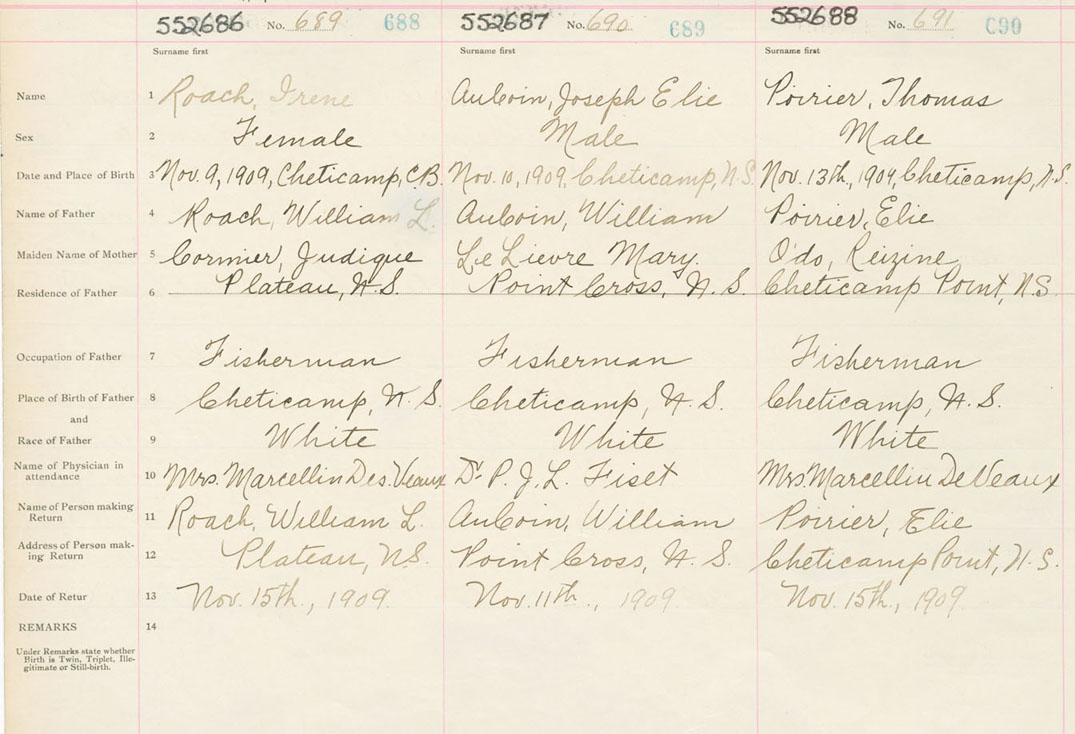 552686 No. 689 688 552687 No. 690 689 552688 No. 691 690
Surname first Surname first Surname first
Name 1 Roach, Irene AuCoin, Joseph Elie Poirier, Thomas
Sex 2 Female Male Male
Date and Place of Birth 3 Nov. 9, 1909, Cheticamp, C.B. Nov. 10, 1909, Cheticamp, N.S. Nov. 13th, 1909, Cheticamp, N.S.
Name of Father 4 Roach, William L. AuCoin, William Poirier, Elie
Maiden Name of Mother 5 Cormier, Judique Le Lievre Mary. O'do, Reizine
Residence of Father 6 Plateau, N.S. Point Cross, N.S. Cheticamp Point, N.S.
Occupation of Father 7 Fisherman Fisherman Fisherman
Place of Birth of Father 8 Cheticamp, N.S. Cheticamp, N.S. Cheticamp, N.S.
and
Race of Father 9 White White White
Name of Physician in
attendance 10 Mrs. Marcellin Des.Veaux Dr. P. J. L. Fiset Mrs. Marcellin DeVeaux
Name of Person making
Return 11 Roach, William L. AuCoin, William Poirier, Elie
Address of Person mak-
ing Return 12 Plateau, N.S. Point Cross, N.S. Cheticamp Point, N.S.
Date of Retur 13 Nov. 15th., 1909. Nov. 11th., 1909. Nov. 15th., 1909.
REMARKS 14
Under Remarks state whether
Birth is Twin, Triplet, Ille-
gitimate or Still-birth.